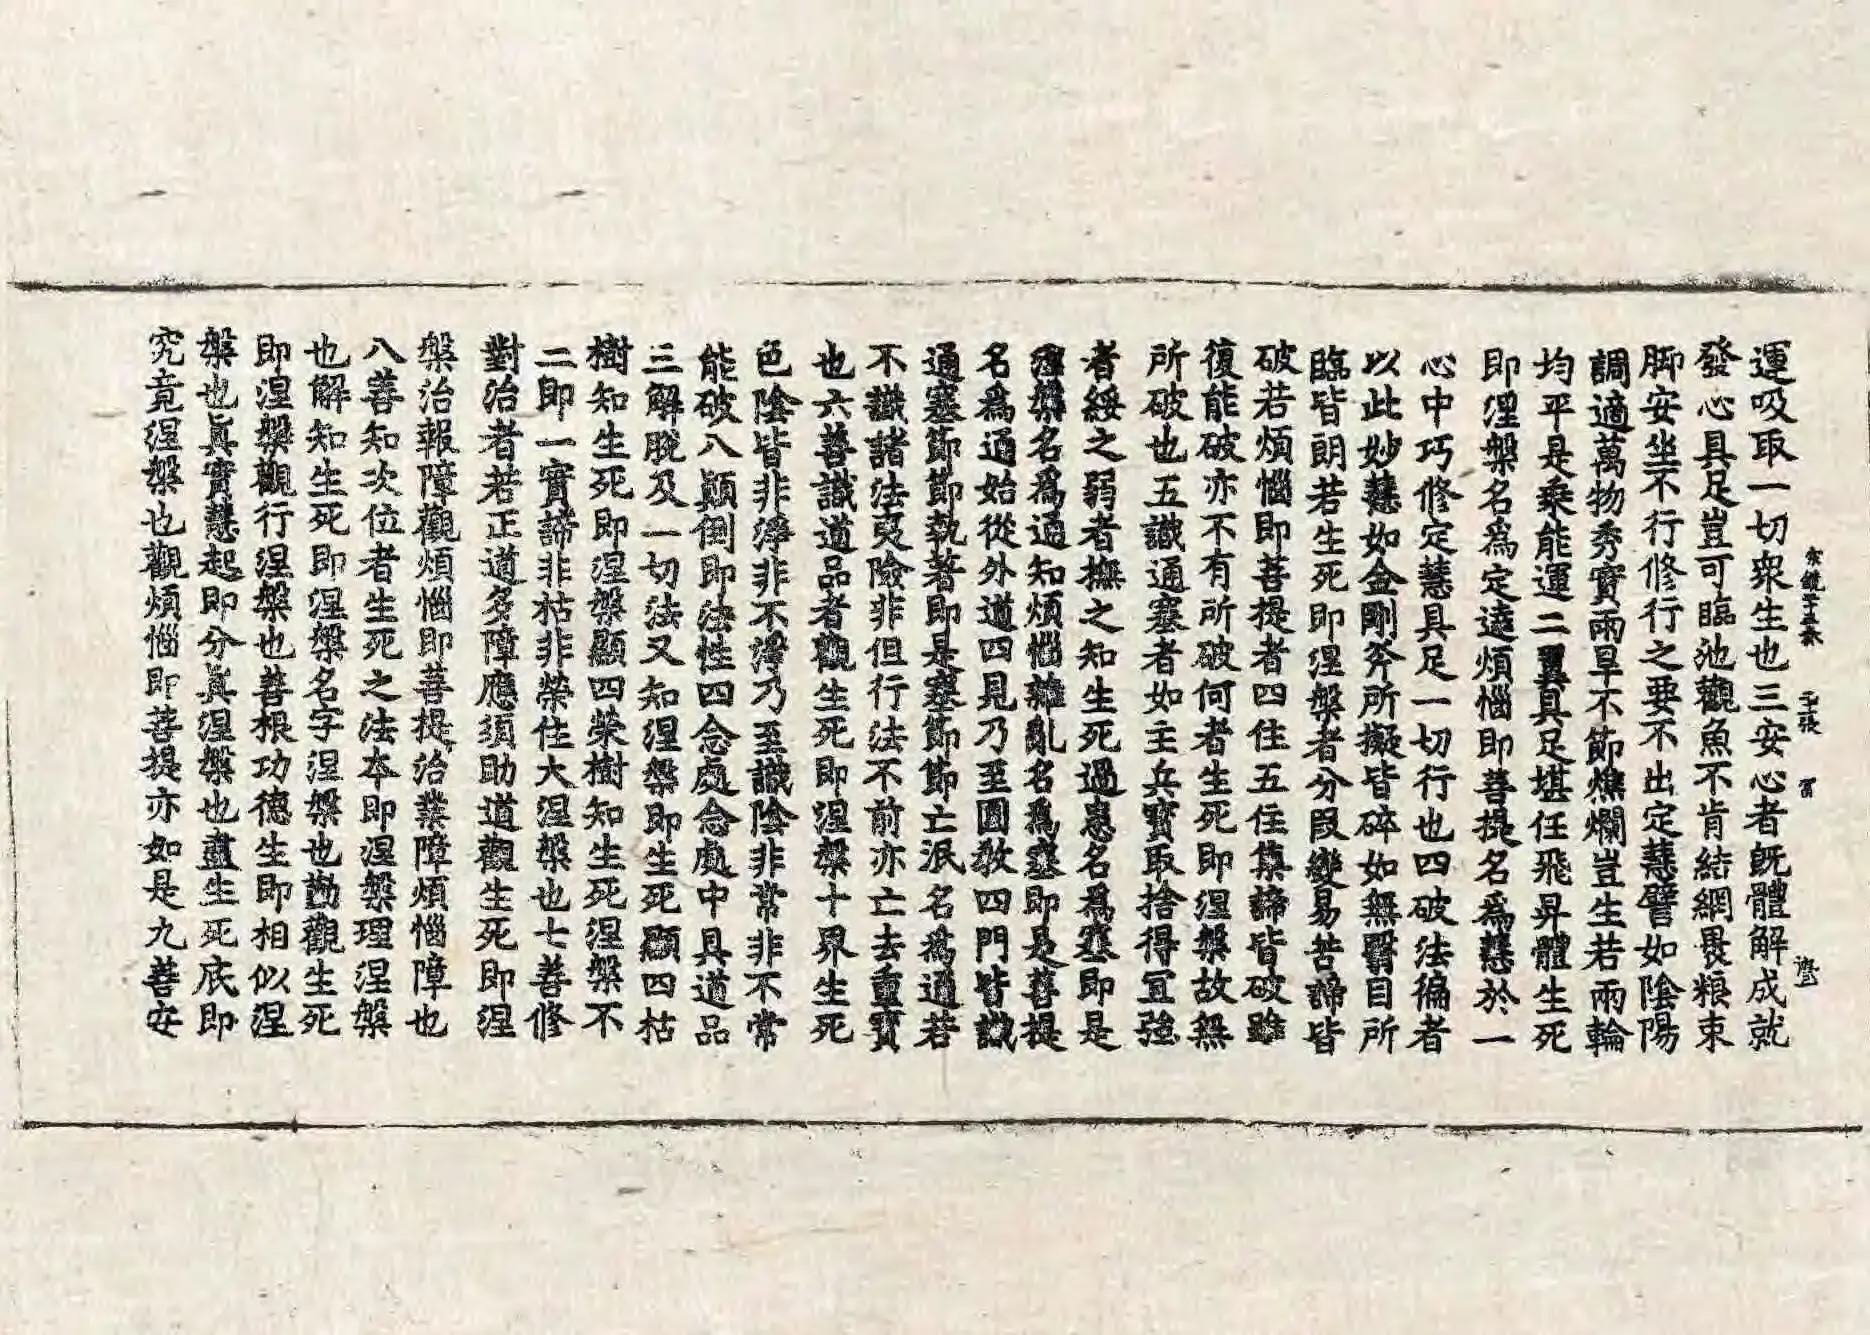 運吸取一切衆生也三安心者旣體解成就
發心具足豈可臨池觀魚不肯結網畏粮束
脚安坐不行修行之要不出定慧譬如陰陽
調適萬物秀實雨旱不節燋爛豈生若兩輪
均平是乘能運二翼具足堪任飛昇體生死
即涅槃名爲定達煩惱即菩提名爲慧於一
心中巧修定慧具足一切行也四破法徧者
以此妙慧如金剛斧所擬皆碎如無翳目所
臨皆朗若生死即涅槃者分段變易苦諦皆
破若煩惱即菩提者四住五住集諦皆破雖
復能破亦不有所破何者生死即涅槃故無
所破也五識通塞者如主兵寶取捨得宜強
者綏之弱者撫之知生死過患名爲塞即是
涅槃名爲通知煩惱雜亂名爲塞即是菩提
名爲通始從外道四見乃至圓教四門皆識
通塞節節執著即是塞節節亡泯名爲通若
不識諸法夷險非但行法不前亦亡去重寶
也六善識道品者觀生死即涅槃十界生死
色陰皆非淨非不淨乃至識陰非常非不常
能破八顚倒即法性四念處念處中具道品
三解脫及一切法又知涅槃即生死顯四枯
樹知生死即涅槃顯四榮樹知生死涅槃不
二即一實諦非枯非榮住大涅槃也七善修
對治者若正道多障應須助道觀生死即涅
槃治報障觀煩惱即菩提治業障煩惱障也
八善知次位者生死之法本即涅槃理涅槃
也解知生死即涅槃名字涅槃也勤觀生死
即涅槃觀行涅槃也善根功德生即相似涅
槃也眞實慧起即分眞涅槃也盡生死底即
究竟涅槃也觀煩惱即菩提亦如是九善安